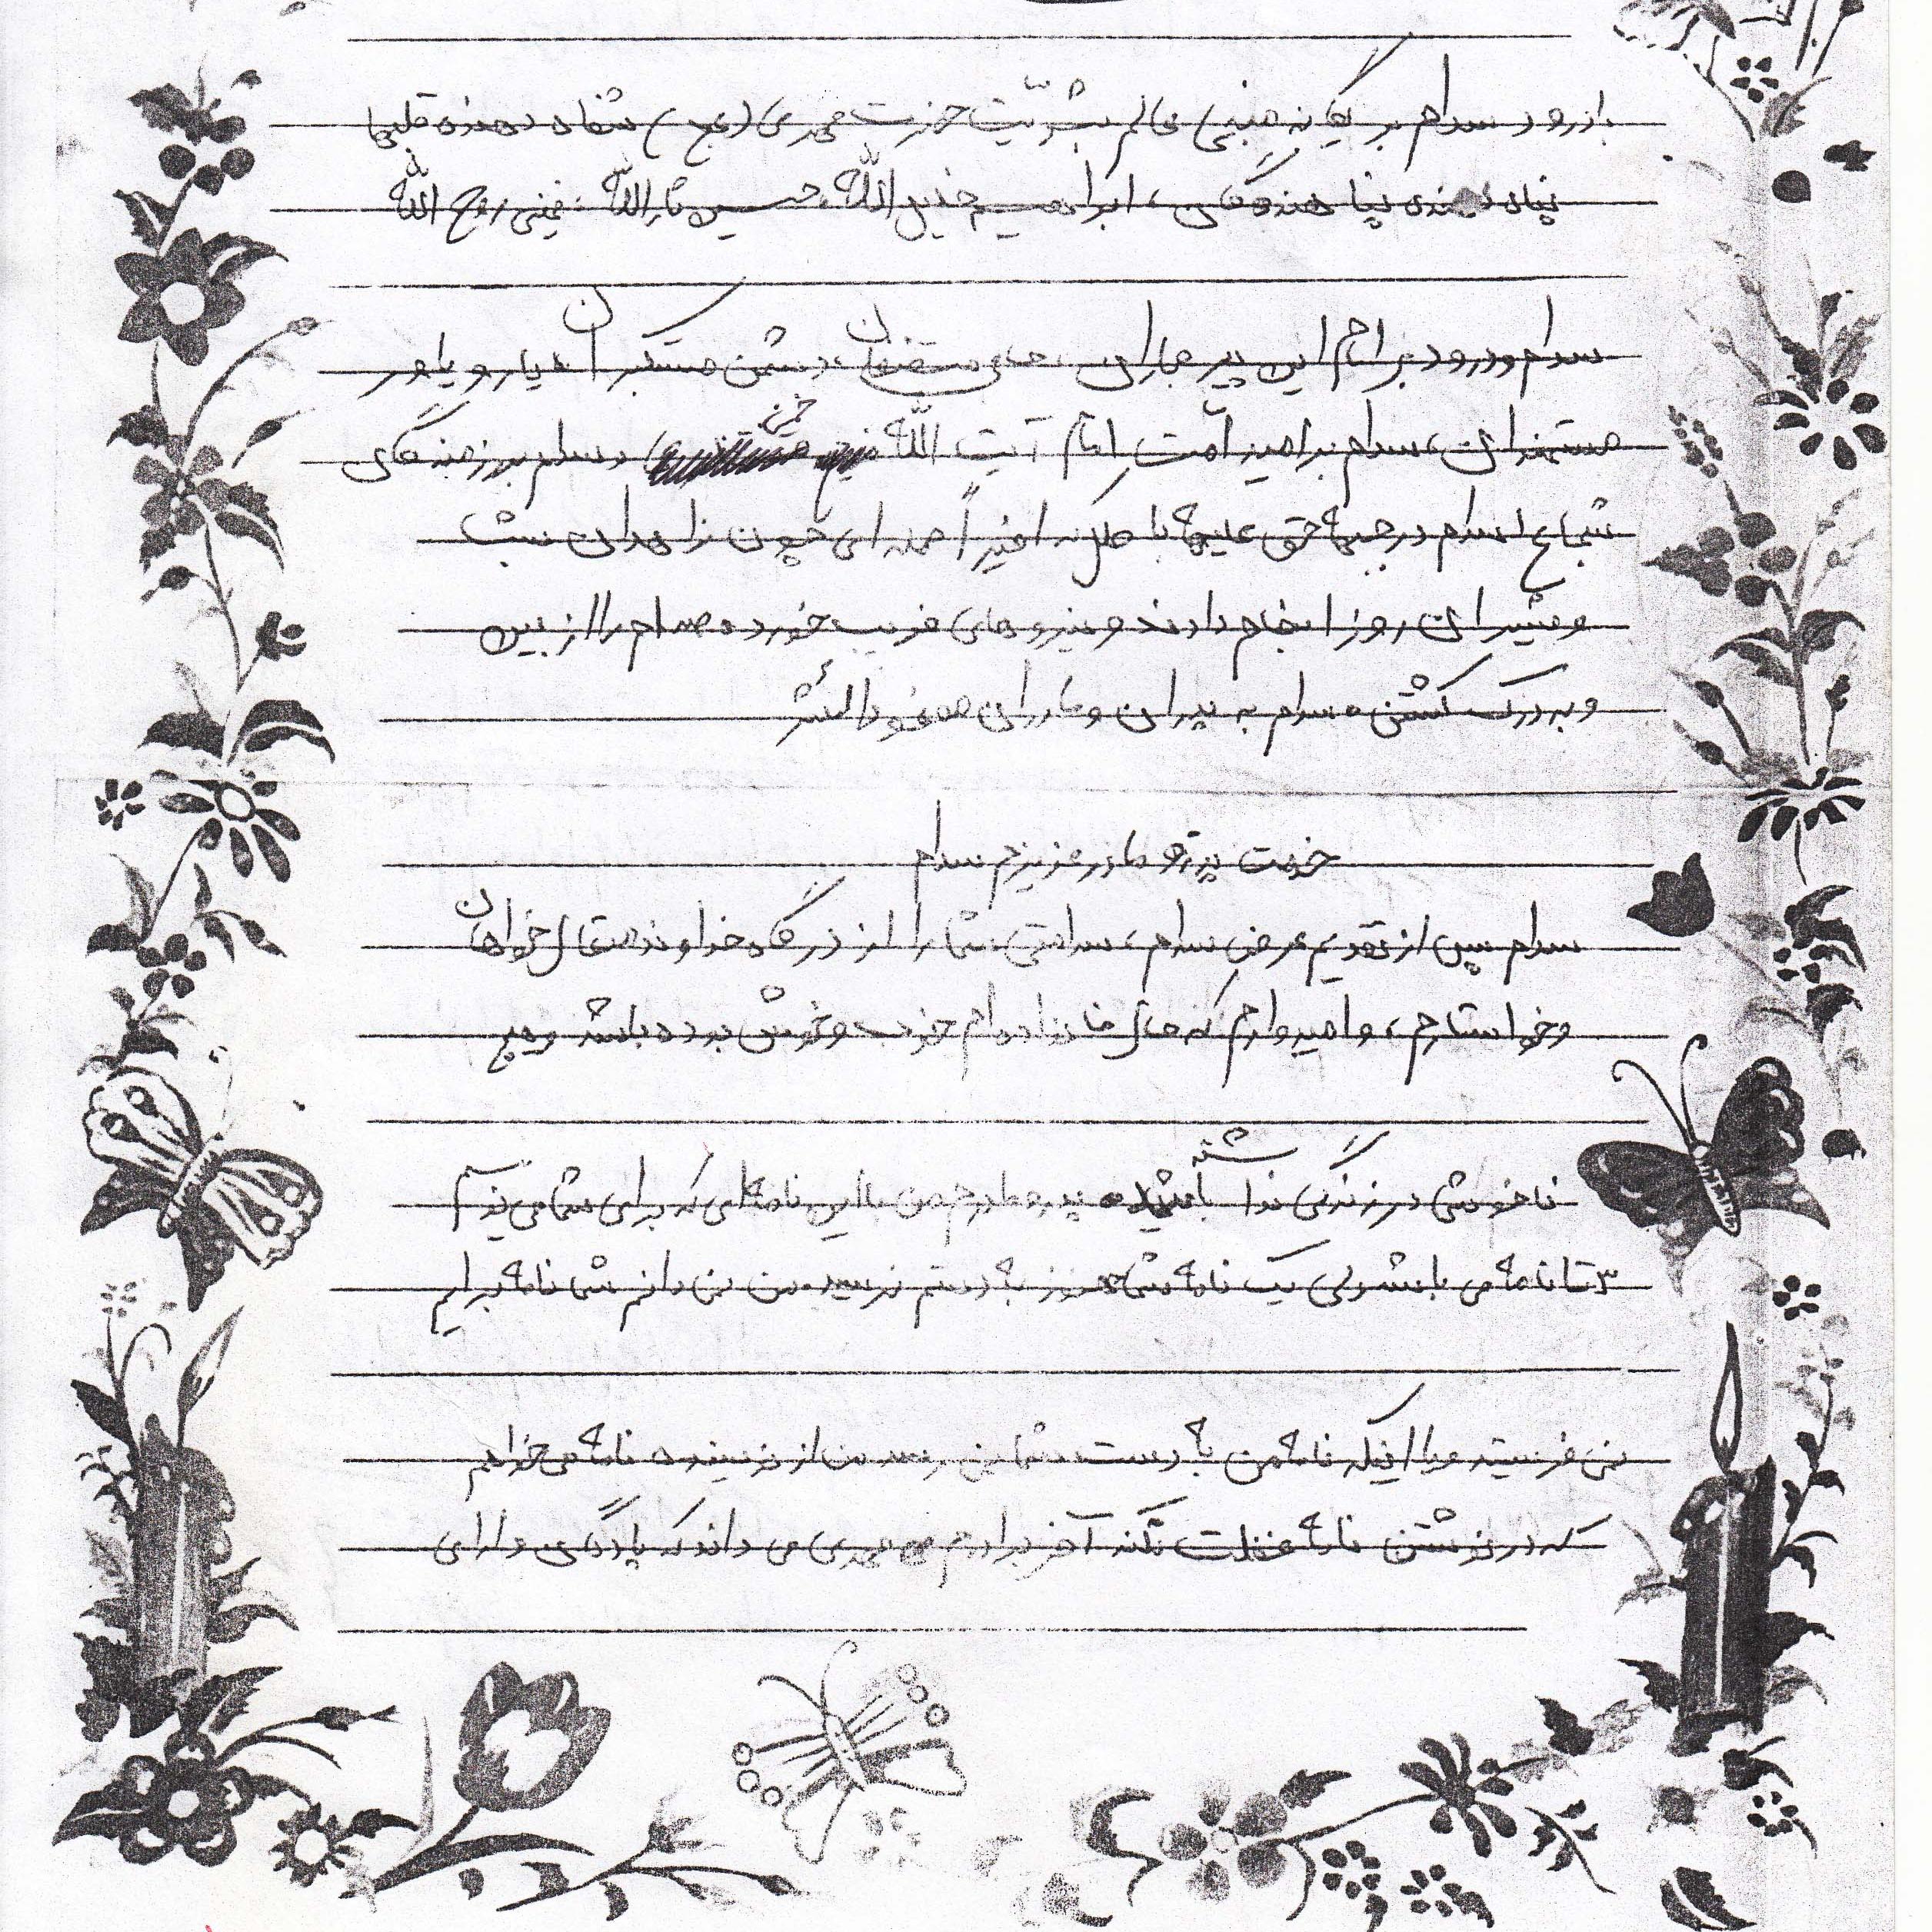 با درود و سلام بر یگانه منجی عالم بشریت حضرت مهدی (عج) شفا دهنده قلبها
پناه دهنده‌ی پناهندگان، ابراهیم خلیل الله، حسین ثارالله، خمینی روح الله
سلام و درود بر امام این پیر جماران، حامی مستضعفان، دشمن مستکبران، یار و یاور
مستمندان، سلام بر امید امت امام آیت الله خمینی و سلام بر رزمندگان
شجاع اسلام در جبهه حق علیه باطل که اخیراً حمله ای چون زاهدان شب
و شیران روز انجام دادند و نیروهای فریب خورده صدام را از بین
و به درک کشتن، سلام به پدران و مادران
خدمت پدر و مادر عزیزم سلام
سلام پس از تقدیم عرض سلام، سلامتی شما را از درگاه خداوند متعال خواهان
و خواستارم، و امیدوارم که حال خانواده ام خوب و خوش بوده باشد و هیچ
ناخوشی در زندگی نداشته باشید پدر و مادرم من با این نامه ای که برای شما می نویسم
۳ تا نامه می باشد ولی یک نامه شما هنوز به دستم نرسید، من نمی دانم شما نامه برایم
نمی فرستید و یا اینکه نامه من به دست شما نمی رسد من از نویسنده نامه می خواهم
که در نوشتن نامه غفلت نکند آخر برادرم مهدی می داند که پادگان و ارای